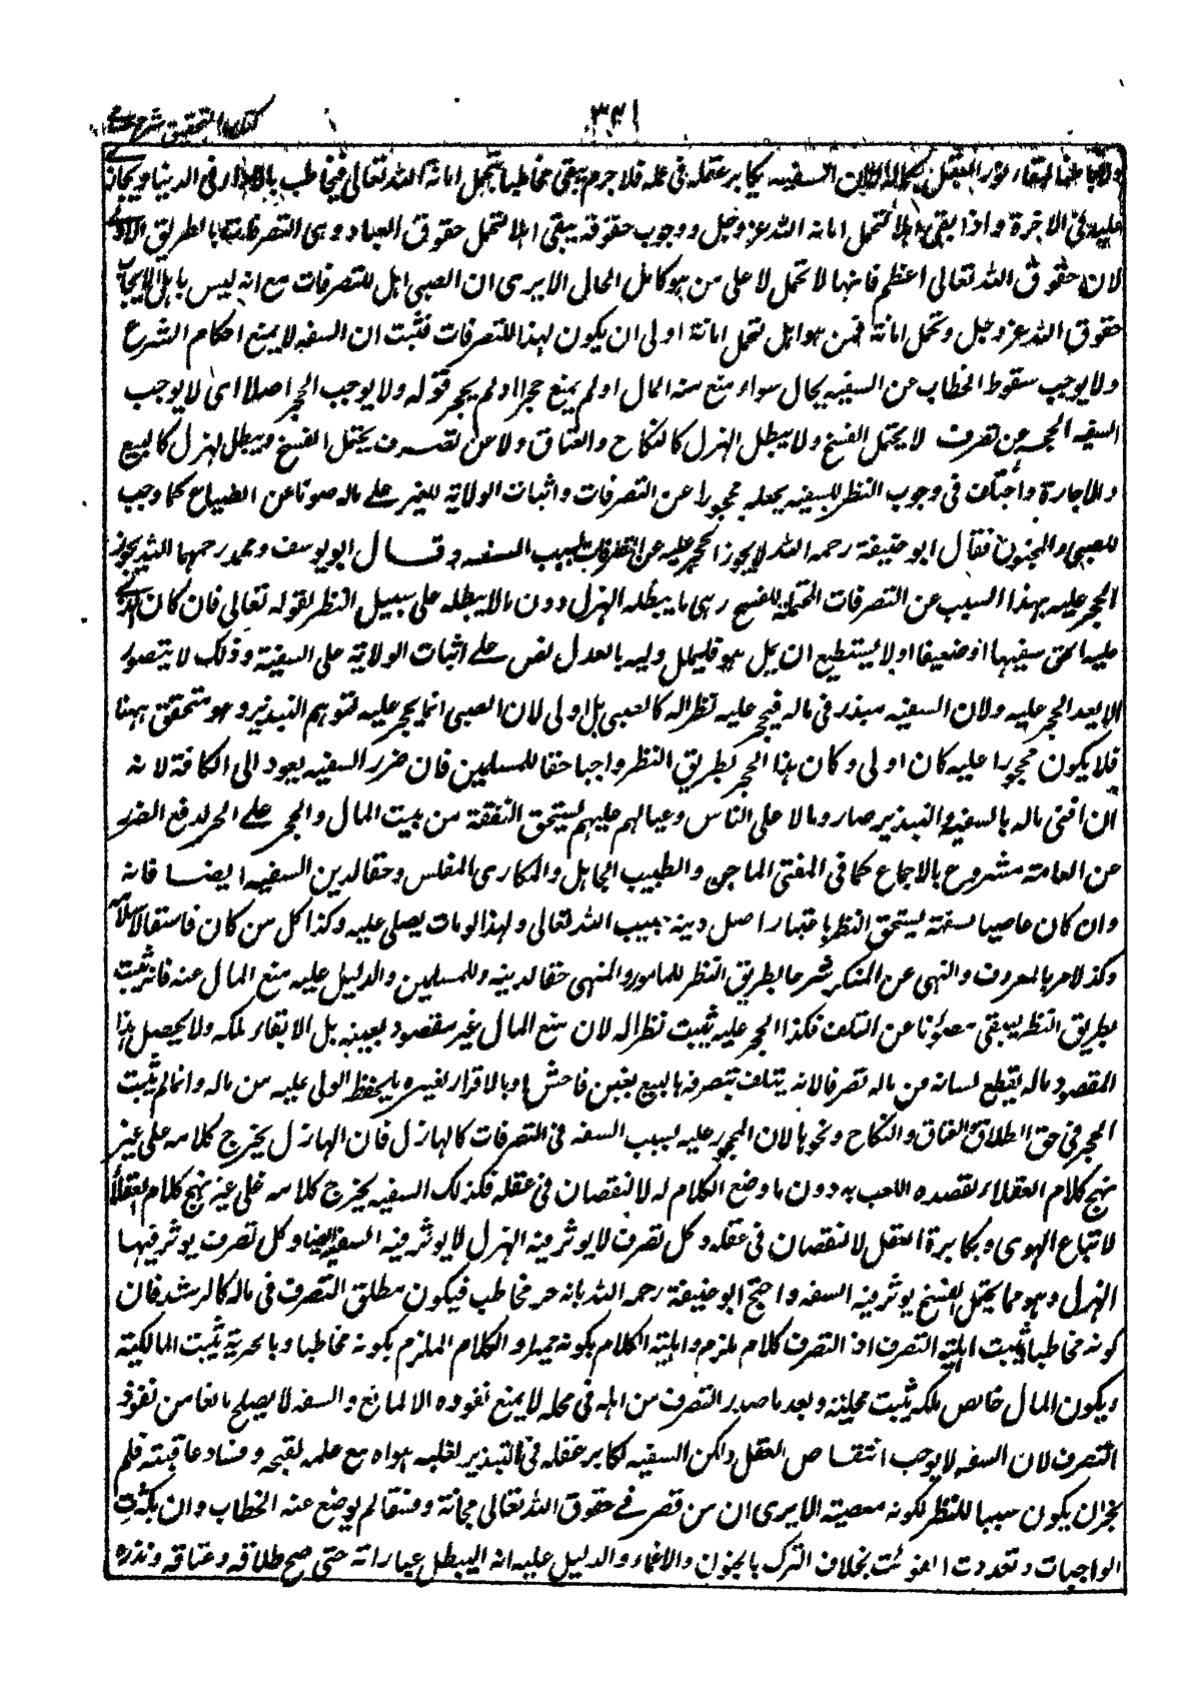 كتاب التحقيق شرح
٣٤١
لان السفيه يكابر عقله فى عمله فلا جرم يبقى مخاطبا بتحمل امانة الله تعالى فيخاطب بالاداء فى الدنيا ويجازى
عليه فى الاخرة واذا بقى اهلا لتحمل امانة الله عز وجل ووجوب حقوقه يبقى اهلا لتحمل حقوق العباد وهى التصرفات بالطريق الاولى
لان حقوق الله تعالى اعظم فانها لا تحمل الا على من هو كامل الحال الا يرى ان الصبى اهل للتصرفات مع انه ليس باهل لايجاب
حقوق الله عز وجل وتحمل امانة فمن هو اهل تحمل امانة اولى ان يكون لهذا للتصرفات فثبت ان السفه لا يمنع احكام الشرع
ولا يوجب سقوط الخطاب عن السفيه بحال سواء منع منه المال او لم يمنع حجرا ولم يحجر قوله ولا يوجب الحجر اصلا اى لا يوجب
السفه الحجر عن تصرف لا يحتمل الفسخ ولا يبطل الهزل كالنكاح والعتاق ولا عن تصرف يحتمل الفسخ ويبطل الهزل كالبيع
والاجارة واختلف فى وجوب النظر للسفيه بجعله محجورا عن التصرفات واثبات الولاية للغير على ماله صونا عن الضياع كما وجب
للصبى والمجنون فقال ابو حنيفة رحمه الله لا يجوز الحجر عليه عن التصرفات بسبب السفه وقال ابو يوسف ومحمد رحمهما الله يجوز
الحجر عليه بهذا السبب عن التصرفات المحتملة للفسخ وهى ما يبطله الهزل دون ما لا يبطله على سبيل النظر لقوله تعالى فان كان الذى
عليه الحق سفيها او ضعيفا او لا يستطيع ان يمل هو فليملل وليه بالعدل نص على اثبات الولاية على السفيه وذلك لا يتصور
الا بعد الحجر عليه ولان السفيه مبذر فى ماله فيحجر عليه نظرا له كالصبى بل اولى لان الصبى انما يحجر عليه لتوهم التبذير وهو متحقق ههنا
فلا يكون محجورا عليه كان اولى وكان هذا الحجر بطريق النظر واجبا حقا للمسلمين فان ضرر السفيه يعود الى الكافة لانه
ان افنى ماله بالسفه والتبذير صار وبالا على الناس وعيالهم عليهم يستحق النفقة من بيت المال والحجر على الحر لدفع الضرر
عن العامة مشروع بالاجماع كما فى المفتى الماجن والطبيب الجاهل والمكارى المفلس وحقا لدين السفيه ايضا فانه
وان كان عاصيا بسفهه يستحق النظر باعتبار اصل دينه بسبب الله تعالى ولهذا لو مات يصلى عليه وكذا كل من كان فاسقا
وكذا الامر بالمعروف والنهى عن المنكر شرعا بطريق النظر للمامور والمنهى حقا لدينه وللمسلمين والدليل عليه منع المال عنه فانه يثبت
بطريق النظر ليبقى مصونا عن التلف فكذا الحجر عليه يثبت نظرا له لان منع المال غير مقصود بعينه بل الابقاء ملكه ولا يحصل هذا
المقصود ماله يقطع لسانه من ماله تصرفا لانه يتلف بتصرفه بالبيع بغبن فاحش او بالاقرار لغيره يحفظ الولى عليه من ماله وانما لم يثبت
الحجر فى حق الطلاق والعتاق والنكاح ونحوها لان المحجور عليه بسبب السفه فى التصرفات كالهازل فان الهازل يخرج كلامه على غير
نهج كلام العقلاء لقصده اللعب به دون ما وضع الكلام له لا لنقصان فى عقله فكذلك السفيه يخرج كلامه على غير نهج كلام العقلاء
لاتباع الهوى ومكابرة العقل لا لنقصان فى عقله وكل تصرف لا يوثر فيه الهزل لا يوثر فيه السفه ايضا وكل تصرف يوثر فيها
الهزل وهو مما يحتمل الفسخ يوثر فيه السفه واحتج ابو حنيفة رحمه الله بانه حر مخاطب فيكون مطلق التصرف فى ماله كالرشد فان
كونه مخاطبا يثبت اهلية التصرف اذ التصرف كلام ملزم واهلية الكلام بكونه مميزا والكلام الملزم بكونه مخاطبا وبالحرية يثبت المالكية
ويكون المال خالص ملكه يثبت محلية وبعد ما صدر التصرف من اهله فى محله لا يمنع نفوذه الا لمانع والسفه لا يصلح مانعا من نفوذ
التصرف لان السفه لا يوجب انتقاص العقل ولكن السفيه لكابر عقله فى التبذير لغلبة هواه مع علمه بقبحه وفساد عاقبته فلم
يجز ان يكون سببا للنظر لكونه معصية الا يرى ان من قصر فى حقوق الله تعالى مجانة وفسقا لم يوضع عنه الخطاب وان كثرت
الواجبات وتعددت الفوائت بخلاف الترك بالجنون والاغماء والدليل عليه انه لا يبطل عباراته حتى صح طلاقه وعتاقه ونذره